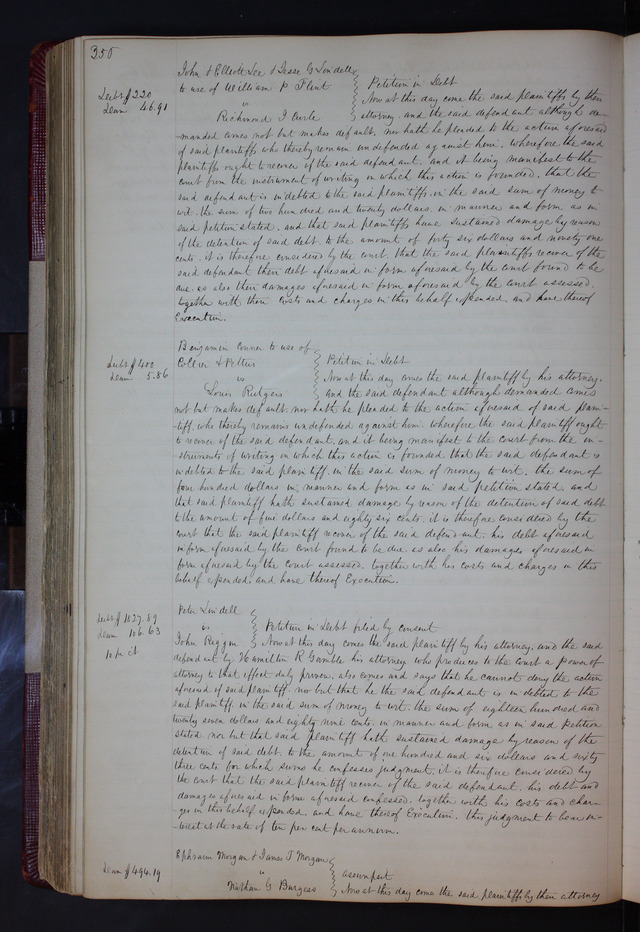 350
John & Elliott Lee & Jesse G Lindell
to use of William P Flint
vs
Richmond J Curle
Debt $220
Dam 46.91
Petition in Debt
Now at this day come the said plaintiffs by their
attorney. and the said defendant although de-
manded comes not but makes default. nor hath he plended to the action aforesaid
of said plaintiffs who thereby remain undefended against him. wherefore the said
plaintiffs ought to recover of the said defendant. and it being manifest to the
court from the instrument of writing on which this action is founded. that the
said defendant is indebted to the said plaintiffs. in the said sum of money to
wit. the sum of two hundred and twenty dollars. in manner and form as in
said petition stated. and that said plaintiffs have sustained damage by reason
of the detention of said debt. to the amount of forty six dollars and ninety one
cents. it is therefore considered by the court. that the said plaintiffs recover of the
said defendant their debt aforesaid in form aforesaid by the court found to be
due. as also their damages aforesaid in form aforesaid by the court assessed.
together with their costs and charges in this behalf expended. and have thereof
Execution.
Benjamin Conner to use of
Collier & Pettus
vs
Louis Rutgers
Debt $400
Dam 5.86
Petition in Debt
Now at this day comes the said plaintiff by his attorney.
and the said defendant although demanded comes
not but makes default. nor hath he pleaded to the action aforesaid of said plain-
tiff. who thereby remains undefended against him. wherefore the said plaintiff ought
to recover of the said defendant. and it being manifest to the court from the in-
struments of writing on which this action is founded that the said defendant is
indebted to the said plaintiff. in the said sum of money to wit. the sum of
four hundred dollars in manner and form as in said petition stated. and
that said plaintiff hath sustained damage by reason of the detention of said debt
to the amount of five dollars and eighty six cents. it is therefore considered by the
court that the said plaintiff recover of the said defendant. his debt aforesaid
in form aforesaid by the court found to be due. as also his damages aforesaid in
form aforesaid by the court assessed. together with his costs and charges in this
behalf expended. and have thereof Execution.
Peter Lindell
vs
John Riggin
debt $1827.89
Dam 106.63
10 pr ct
Petition in Debt filed by consent
Now at this day comes the said plaintiff by his attorney. and the said
defendant by Hamilton R Gamble his attorney who produces to the court a power of
attorney to that effect duly proven. also comes and says that he cannot deny the action
aforesaid of said plaintiff. nor but that he the said defendant is indebted to the
said plaintiff. in the said sum of money to wit. the sum of eighteen hundred and
twenty seven dollars and eighty nine cents. in manner and form as in said petition
stated. nor but that said plaintiff hath sustained damage by reason of the
detention of said debt. to the amount of one hundred and six dollars and sixty
three cents for which sums he confesses judgment. it is therefore considered by
the court that the said plaintiff recover of the said defendant. his debt and
damages aforesaid in form aforesaid confessed. together with his costs and char-
ges in this behalf expended. and have thereof Execution. this judgment to bear in-
terest at the rate of ten per cent per annum.
Ephraim Morgan & James T Morgan
vs
Nathan G Burgess
Dam $494.19
assumpsit
Now at this day come the said plaintiffs by their attorney